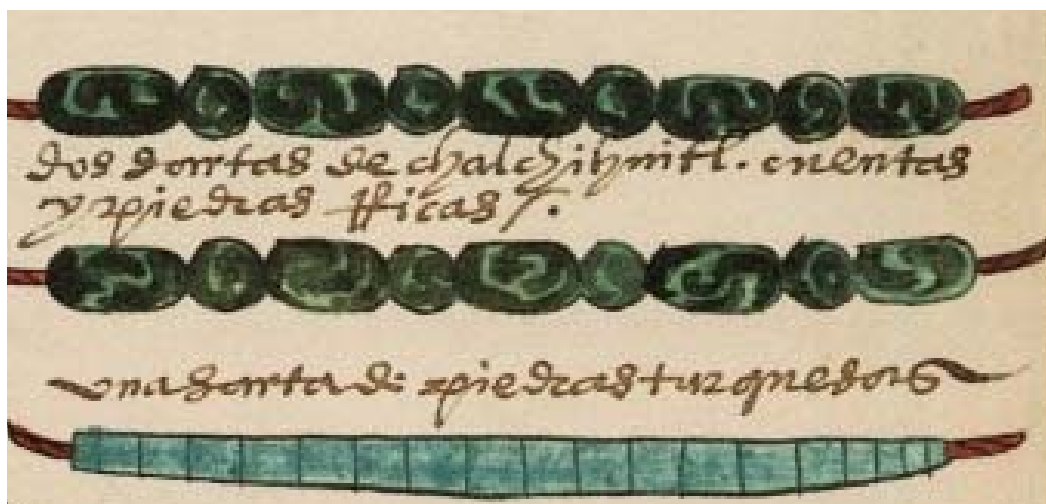 dos sartas de chalchihuitl. cuentas
y piedras rricas /.
una sarta de piedras turquesas